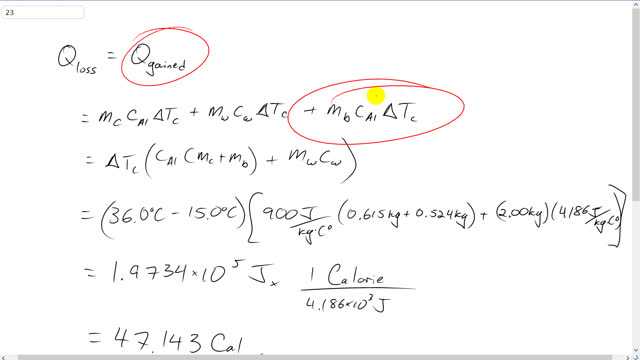 23
Q_loss = Q_gained
= m_c C_Al ΔT_c + m_w C_w ΔT_c + m_b C_Al ΔT_c
= ΔT_c ( C_Al (m_c + m_b) + m_w C_w )
= (36.0°C - 15.0°C) [ 900 J/kg·C° (0.615 kg + 0.524 kg) + (2.00 kg) (4186 J/kg·C°) ]
= 1.9734×10^5 J × 1 Calorie / 4.186×10^3 J
= 47.143 Cal